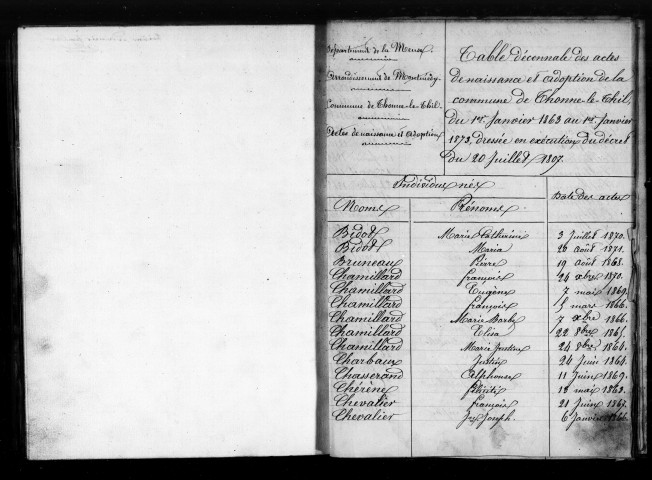 Département de la Meuse
Arrondissement de Montmédy
Commune de Thonne-le-Thil.
Actes de naissance et adoption
Table décennale des actes
de naissance et adoption de la
commune de Thonne-le-Thil,
du 1er Janvier 1863 au 1er Janvier
1873, dressée en exécution du décret
du 20 Juillet 1807.
Individus nés
Noms
Prénoms
Date des actes
Bidot Marie Catherine 3 Juillet 1870.
Bidot Maria 26 août 1871.
Bruneau Pierre 19 août 1868.
Chamillard François 24 xbre 1870.
Chamillard Eugène 7 mai 1869.
Chamillard François 5 mars 1866.
Chamillard Marie 7 xbre 1866.
Chamillard Elisa 22 8bre 1865.
Chamillard Marie Justine 24 8bre 1864.
Charbaux Justin 24 Juin 1864.
Chasserand Alphonse 11 Juin 1869.
Chérène 13 mai 1863.
Chevalier François 21 Juin 1867.
Chevalier Joseph. 6 Janvier 1866.